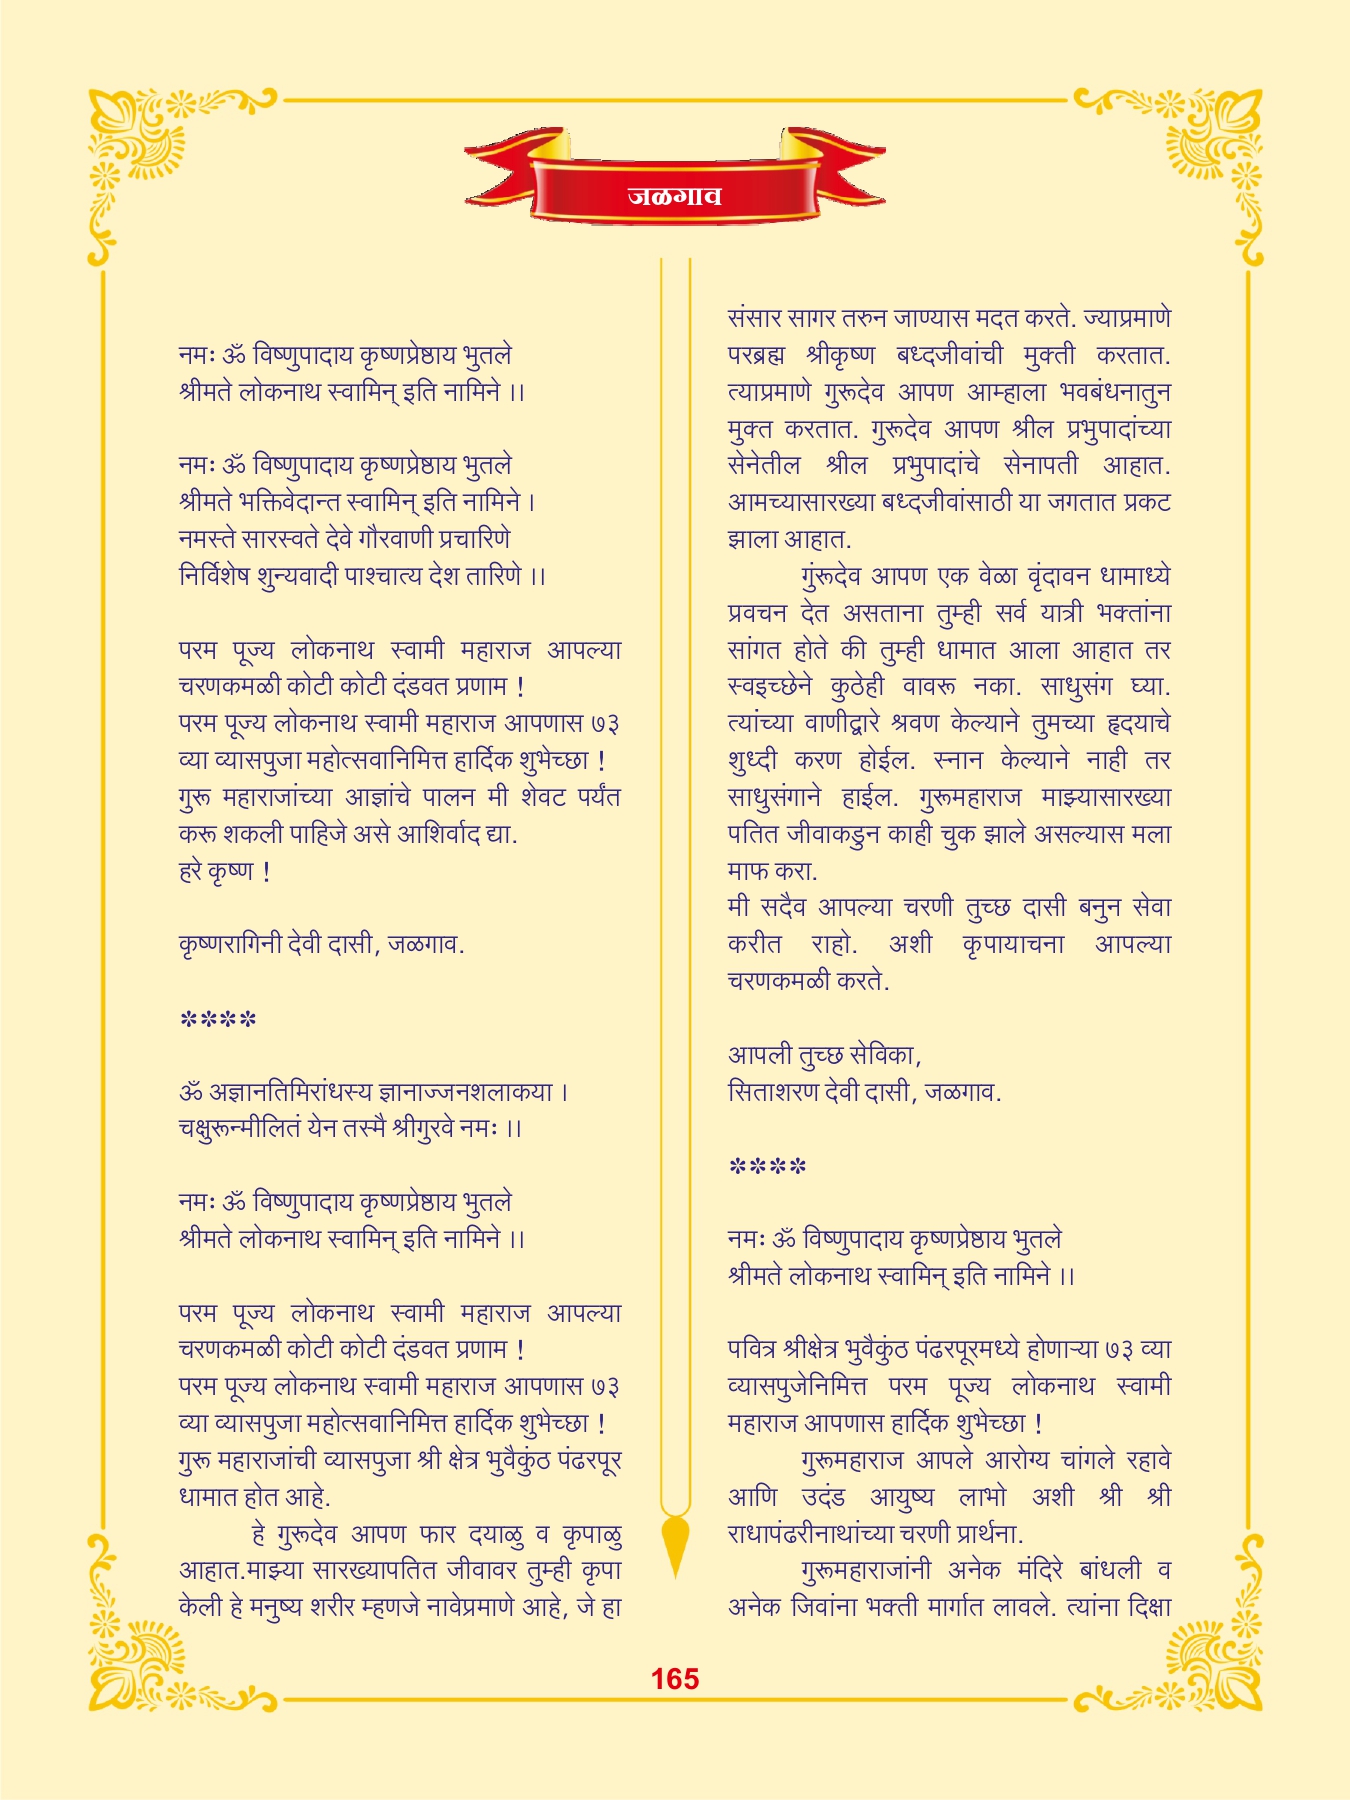 जळगाव
नमः ॐ विष्णुपादाय कृष्णप्रेष्ठाय भुतले
श्रीमते लोकनाथ स्वामिन् इति नामिने ।।
नमः ॐ विष्णुपादाय कृष्णप्रेष्ठाय भुतले
श्रीमते भक्तिवेदान्त स्वामिन् इति नामिने ।
नमस्ते सारस्वते देवे गौरवाणी प्रचारिणे
निर्विशेष शुन्यवादी पाश्चात्य देश तारिणे ।।
परम पूज्य लोकनाथ स्वामी महाराज आपल्या
चरणकमळी कोटी कोटी दंडवत प्रणाम !
परम पूज्य लोकनाथ स्वामी महाराज आपणास ७३
व्या व्यासपुजा महोत्सवानिमित्त हार्दिक शुभेच्छा !
गुरू महाराजांच्या आज्ञांचे पालन मी शेवट पर्यंत
करू शकली पाहिजे असे आशिर्वाद द्या.
हरे कृष्ण !
कृष्णरागिनी देवी दासी, जळगाव.
****
ॐ अज्ञानतिमिरांधस्य ज्ञानाज्जनशलाकया ।
चक्षुरून्मीलितं येन तस्मै श्रीगुरवे नमः ।।
नमः ॐ विष्णुपादाय कृष्णप्रेष्ठाय भुतले
श्रीमते लोकनाथ स्वामिन् इति नामिने ।।
परम पूज्य लोकनाथ स्वामी महाराज आपल्या
चरणकमळी कोटी कोटी दंडवत प्रणाम !
परम पूज्य लोकनाथ स्वामी महाराज आपणास ७३
व्या व्यासपुजा महोत्सवानिमित्त हार्दिक शुभेच्छा !
गुरू महाराजांची व्यासपुजा श्री क्षेत्र भुवैकुंठ पंढरपूर
धामात होत आहे.
हे गुरूदेव आपण फार दयाळु व कृपाळु
आहात.माझ्या सारख्यापतित जीवावर तुम्ही कृपा
केली हे मनुष्य शरीर म्हणजे नावेप्रमाणे आहे, जे हा
संसार सागर तरुन जाण्यास मदत करते. ज्याप्रमाणे
परब्रह्म श्रीकृष्ण बध्दजीवांची मुक्ती करतात.
त्याप्रमाणे गुरूदेव आपण आम्हाला भवबंधनातुन
मुक्त करतात. गुरूदेव आपण श्रील प्रभुपादांच्या
सेनेतील श्रील प्रभुपादांचे सेनापती आहात.
आमच्यासारख्या बध्दजीवांसाठी या जगतात प्रकट
झाला आहात.
गुंरूदेव आपण एक वेळा वृंदावन धामाध्ये
प्रवचन देत असताना तुम्ही सर्व यात्री भक्तांना
सांगत होते की तुम्ही धामात आला आहात तर
स्वइच्छेने कुठेही वावरू नका. साधुसंग घ्या.
त्यांच्या वाणीद्वारे श्रवण केल्याने तुमच्या हृदयाचे
शुध्दी करण होईल. स्नान केल्याने नाही तर
साधुसंगाने हाईल. गुरूमहाराज माझ्यासारख्या
पतित जीवाकडुन काही चुक झाले असल्यास मला
माफ करा.
मी सदैव आपल्या चरणी तुच्छ दासी बनुन सेवा
करीत राहो. अशी कृपायाचना आपल्या
चरणकमळी करते.
आपली तुच्छ सेविका,
सिताशरण देवी दासी, जळगाव.
****
नमः ॐ विष्णुपादाय कृष्णप्रेष्ठाय भुतले
श्रीमते लोकनाथ स्वामिन् इति नामिने ।।
पवित्र श्रीक्षेत्र भुवैकुंठ पंढरपूरमध्ये होणाऱ्या ७३ व्या
व्यासपुजेनिमित्त परम पूज्य लोकनाथ स्वामी
महाराज आपणास हार्दिक शुभेच्छा !
गुरूमहाराज आपले आरोग्य चांगले रहावे
आणि उदंड आयुष्य लाभो अशी श्री श्री
राधापंढरीनाथांच्या चरणी प्रार्थना.
गुरूमहाराजांनी अनेक मंदिरे बांधली व
अनेक जिवांना भक्ती मार्गात लावले. त्यांना दिक्षा
165